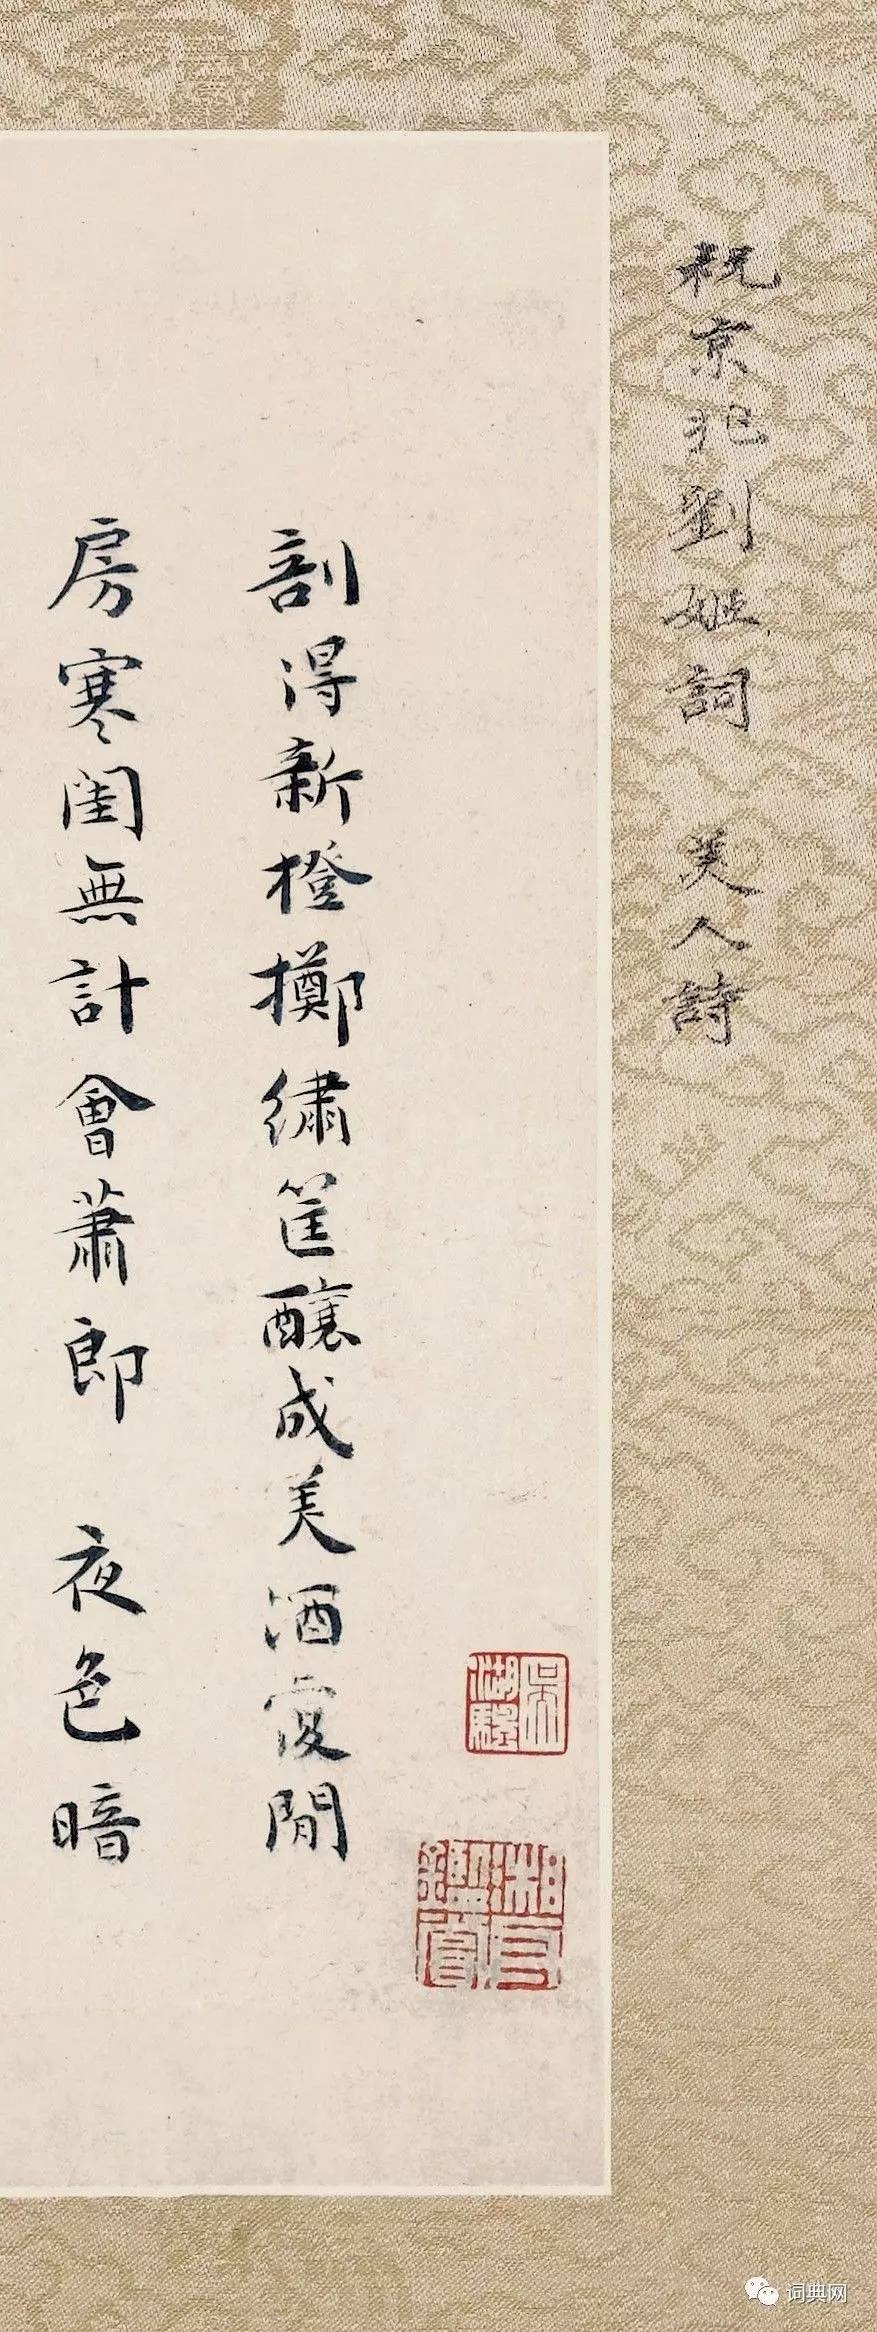 祝京兆劉姬詞 美人詩
剖得新橙擲繡筐釀成美酒閒
房寒閨無計會蕭郎 夜色暗
吳湖颿
湘舟鑑賞
词典网